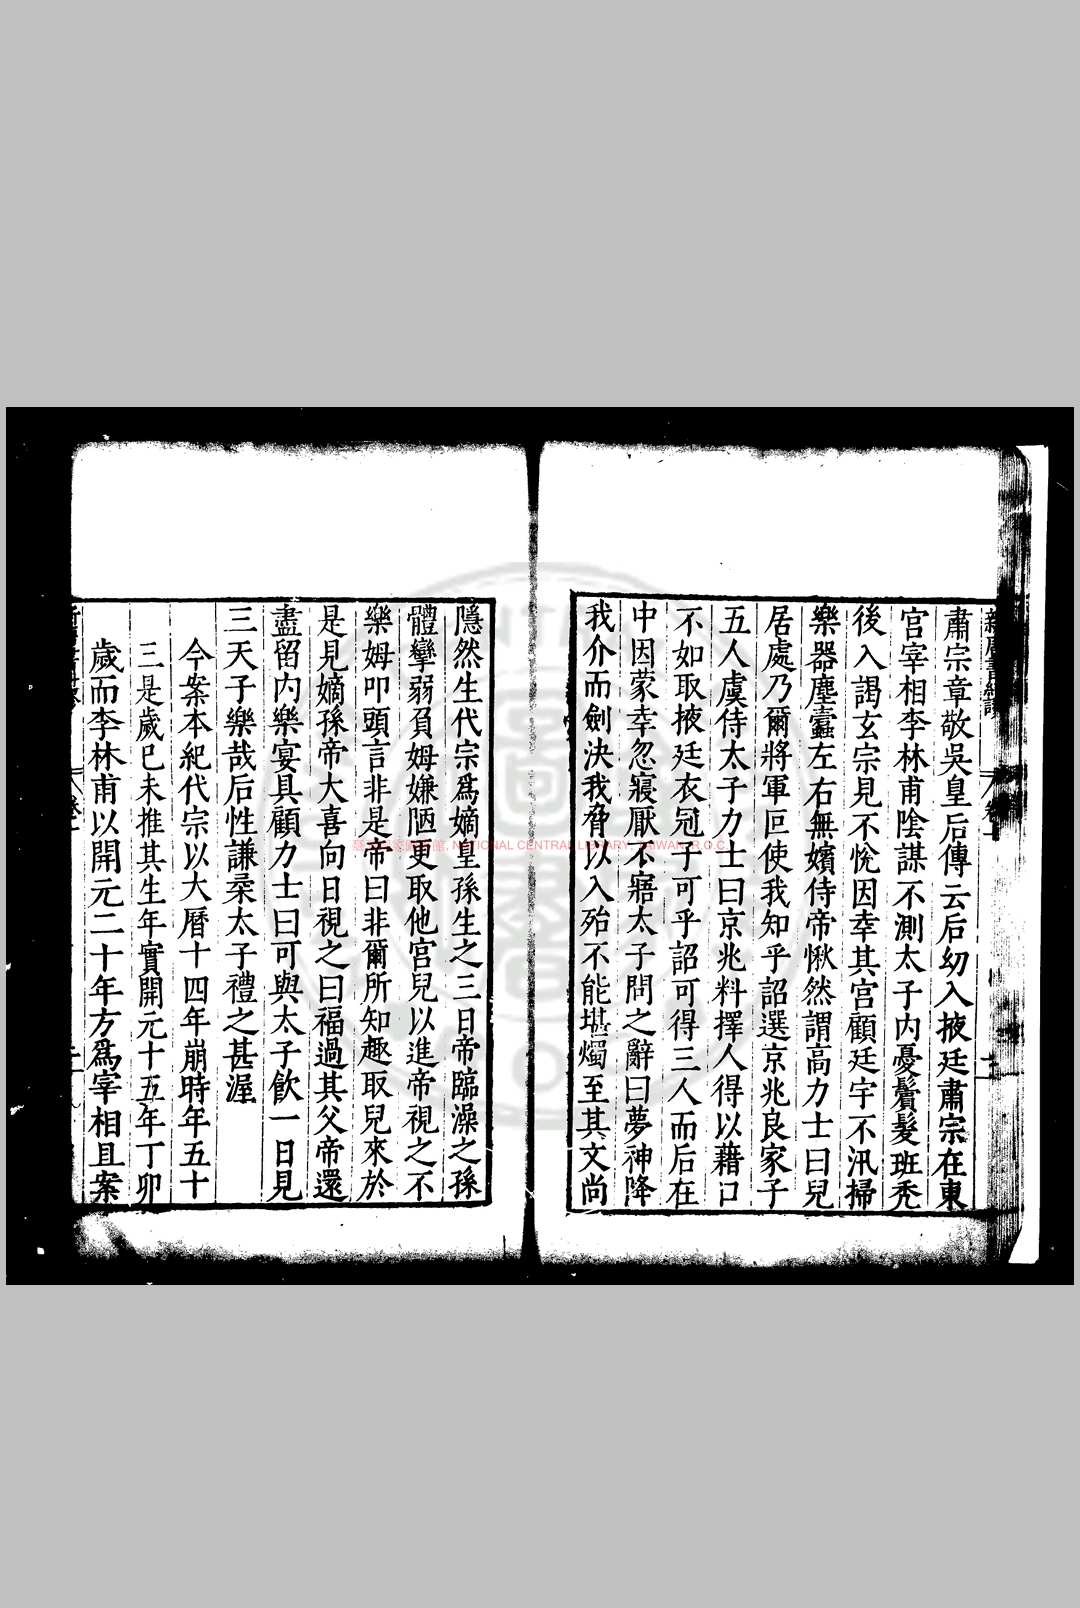 肅宗章敬吳皇后傳云后㓜入掖廷肅宗在東
宮宰相李林甫陰謀不測太子内憂鬢髮班禿
後入謁玄宗見不悅因幸其宮顧廷宇不汛掃
樂器塵蠹左右無嬪侍帝愀然謂高力士曰兒
居處乃爾將軍叵使我知乎詔選京兆良家子
五人虞侍太子力士曰京兆料擇人得以藉口
不如取掖廷衣冠子可乎詔可得三人而后在
中因蒙幸忽寢厭不寤太子問之辭曰夢神降
我介而劍決我脅以入殆不能堪燭至其文尚
隱然生代宗爲嫡皇孫生之三日帝臨澡之孫
體攣弱負姆嫌陋更取他宮兒以進帝視之不
樂姆叩頭言非是帝曰非爾所知趣取兒來於
是見嫡孫帝大喜向日視之曰福過其父帝還
盡留内樂宴具顧力士曰可與太子飮一日見
三天子樂哉后性謙桒太子禮之甚渥
今案本紀代宗以大曆十四年崩時年五十
三是歲巳未推其生年實開元十五年丁卯
歲而李林甫以開元二十年方爲宰相且案
國家圖書館, NATIONAL CENTRAL LIBRARY, TAIWAN, R.O.C.